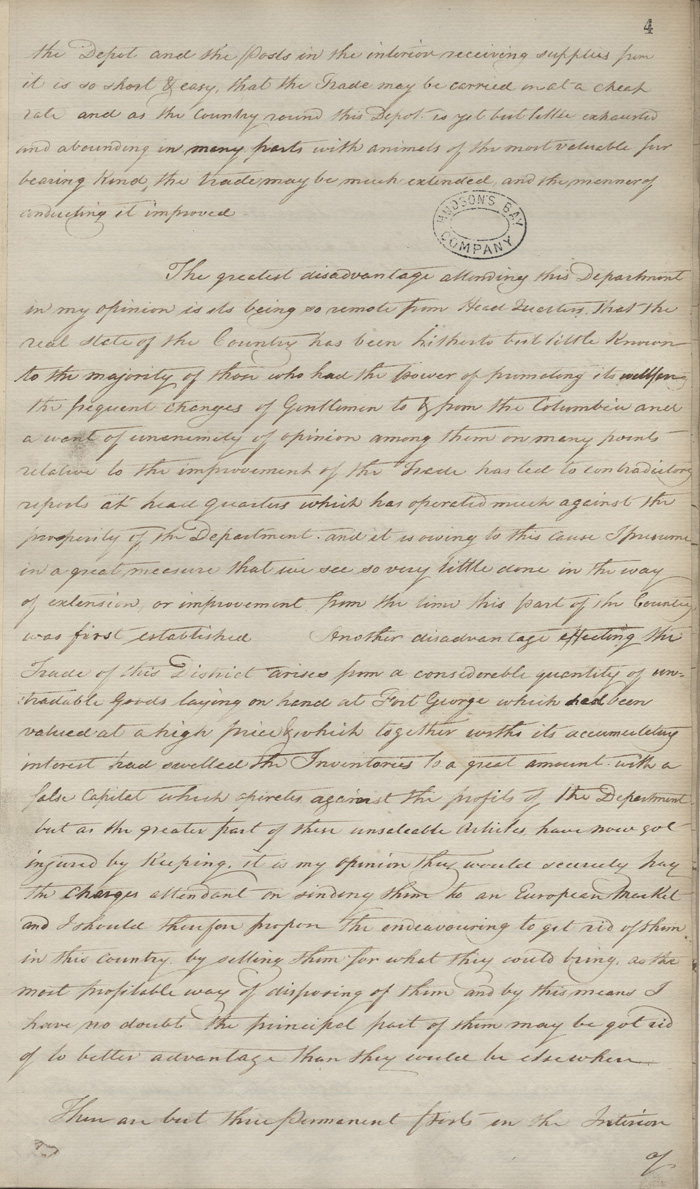 4
the Depot and the Posts in the interior receiving supplies from
it is so short & easy, that the Trade may be carried on at a cheap
rate and as the Country round this Depot is yet but little exhausted
and abounding in many parts with animals of the most valuable fur
bearing kind, the trade may be much extended, and the manner of
conducting it improved
HUDSON'S BAY
COMPANY
The greatest disadvantage attending this Department
in my opinion is its being so remote from Head Quarters, that the
real state of the Country has been hitherto but little Known
to the majority of those who had the power of promoting its wellfare
the frequent changes of Gentlemen to & from the Columbia and
a want of unanimity of opinion among them on many points
relative to the improvement of the Trade has led to contradictory
reports at head quarters which has operated much against the
prosperity of the Department. and it is owing to this cause I presume
in a great measure that we see so very little done in the way
of extension, or improvement from the time this part of the Country
was first established Another disadvantage effecting the
Trade of this District arises from a considerable quantity of un-
tradable Goods laying on hand at Fort George which had been
valued at a high price & which together with its accumulating
interest had swelled the Inventories to a great amount with a
false Capital which operates against the profits of the Department
but as the greater part of these unsaleable Articles have now got
injured by Keeping, it is my opinion they would scarcely pay
the charges attendant on sending them to an European Market
and I should therefore propose the endeavouring to get rid of them
in this country by selling them for what they could bring, as the
most profitable way of disposing of them and by this means I
have no doubt the principal part of them may be got rid
of to better advantage than they would be elsewhere
There are but three Permanent Posts in the Interior
of